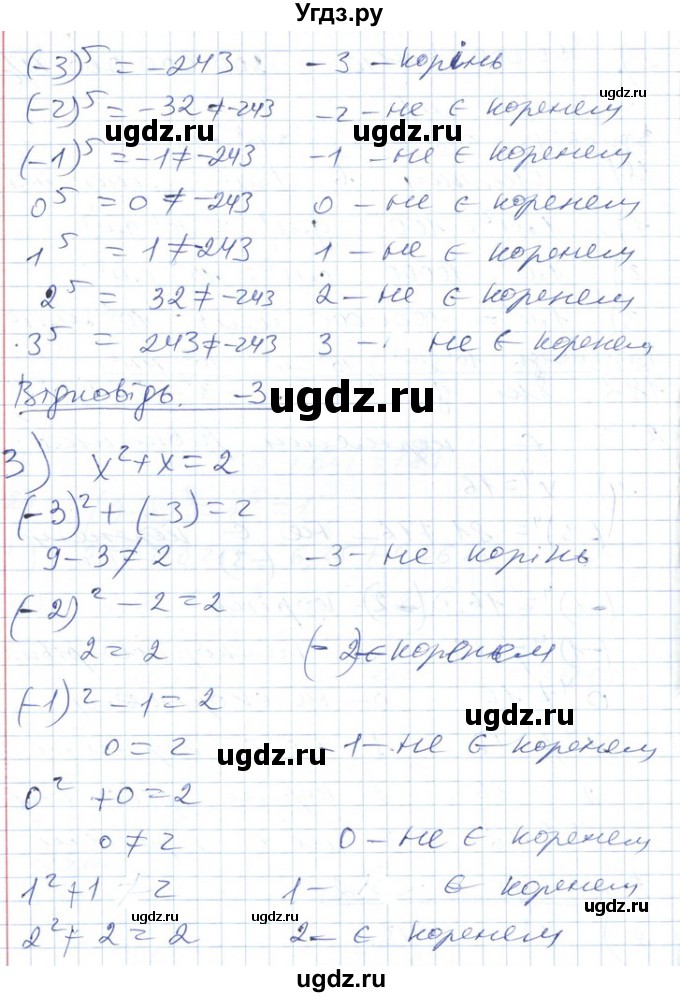 Угдз.ру
(-3)⁵ = -243 -3 - корінь
(-2)⁵ = -32 ≠ -243 -2 - не є коренем
ugdz.ru ugdz.ru
(-1)⁵ = -1 ≠ -243 -1 - не є коренем
0⁵ = 0 ≠ -243 0 - не є коренем
1⁵ = 1 ≠ -243 1 - не є коренем
2⁵ = 32 ≠ -243 2 - не є коренем
3⁵ = 243 ≠ -243 3 - не є коренем
Відповідь. -3
ugdz.ru
3) x² + x = 2
(-3)² + (-3) = 2
9 - 3 ≠ 2 -3 - не корінь
(-2)² - 2 = 2
ugdz.ru
2 = 2 (-2) є коренем
(-1)² - 1 = 2
ugdz.ru
0 = 2 -1 - не є коренем
ugdz.ru
0² + 0 = 2
0 ≠ 2 0 - не є коренем
1² + 1 2 1 - є коренем
ugdz.ru ugdz.ru
2² + 2 = 2 2 - є коренем
ugdz.ru